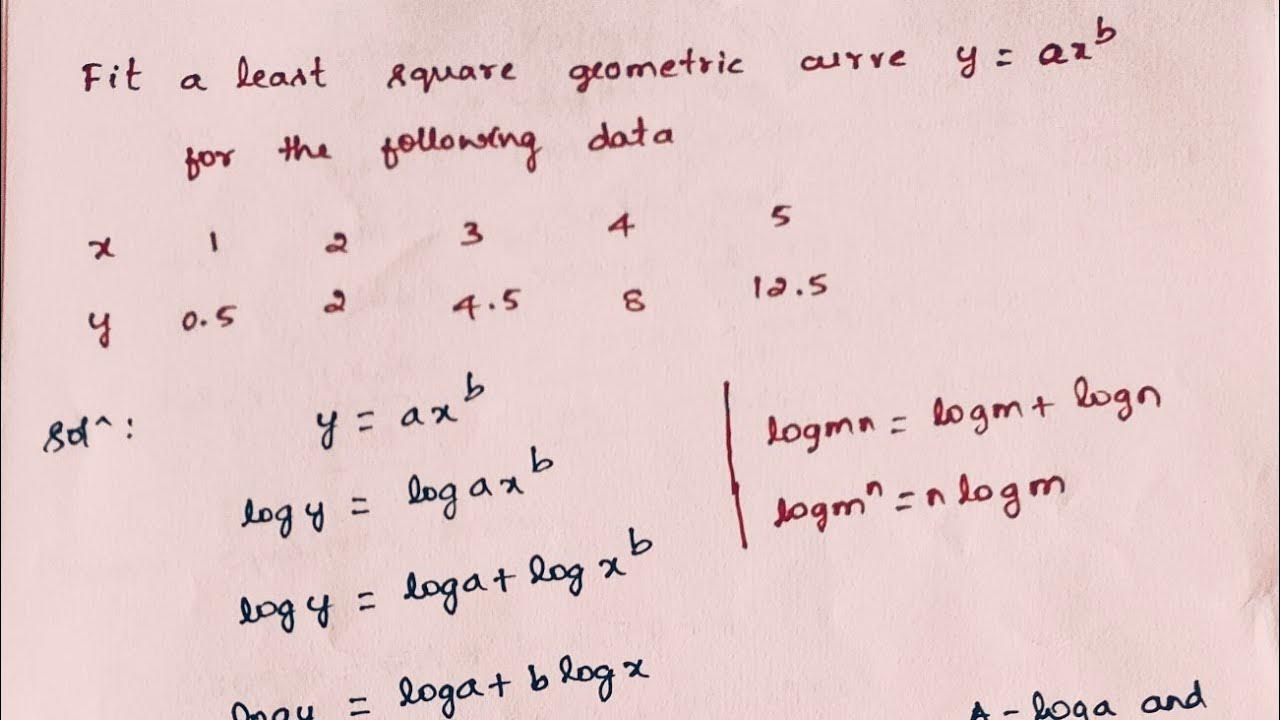 Fit a least square geometric curve y = ax^b
for the following data
x 1 2 3 4 5
y 0.5 2 4.5 8 12.5
Sol^n: y = ax^b
logmn = logm + logn
log y = log ax^b
logm^n = n logm
log y = loga + log x^b
log y = loga + b log x
A = loga and